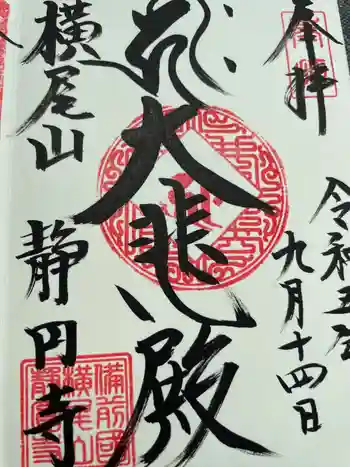 奉拝
令和五年
九月十四日
大悲殿
横尾山 静円寺
備前國
横尾山
静円寺